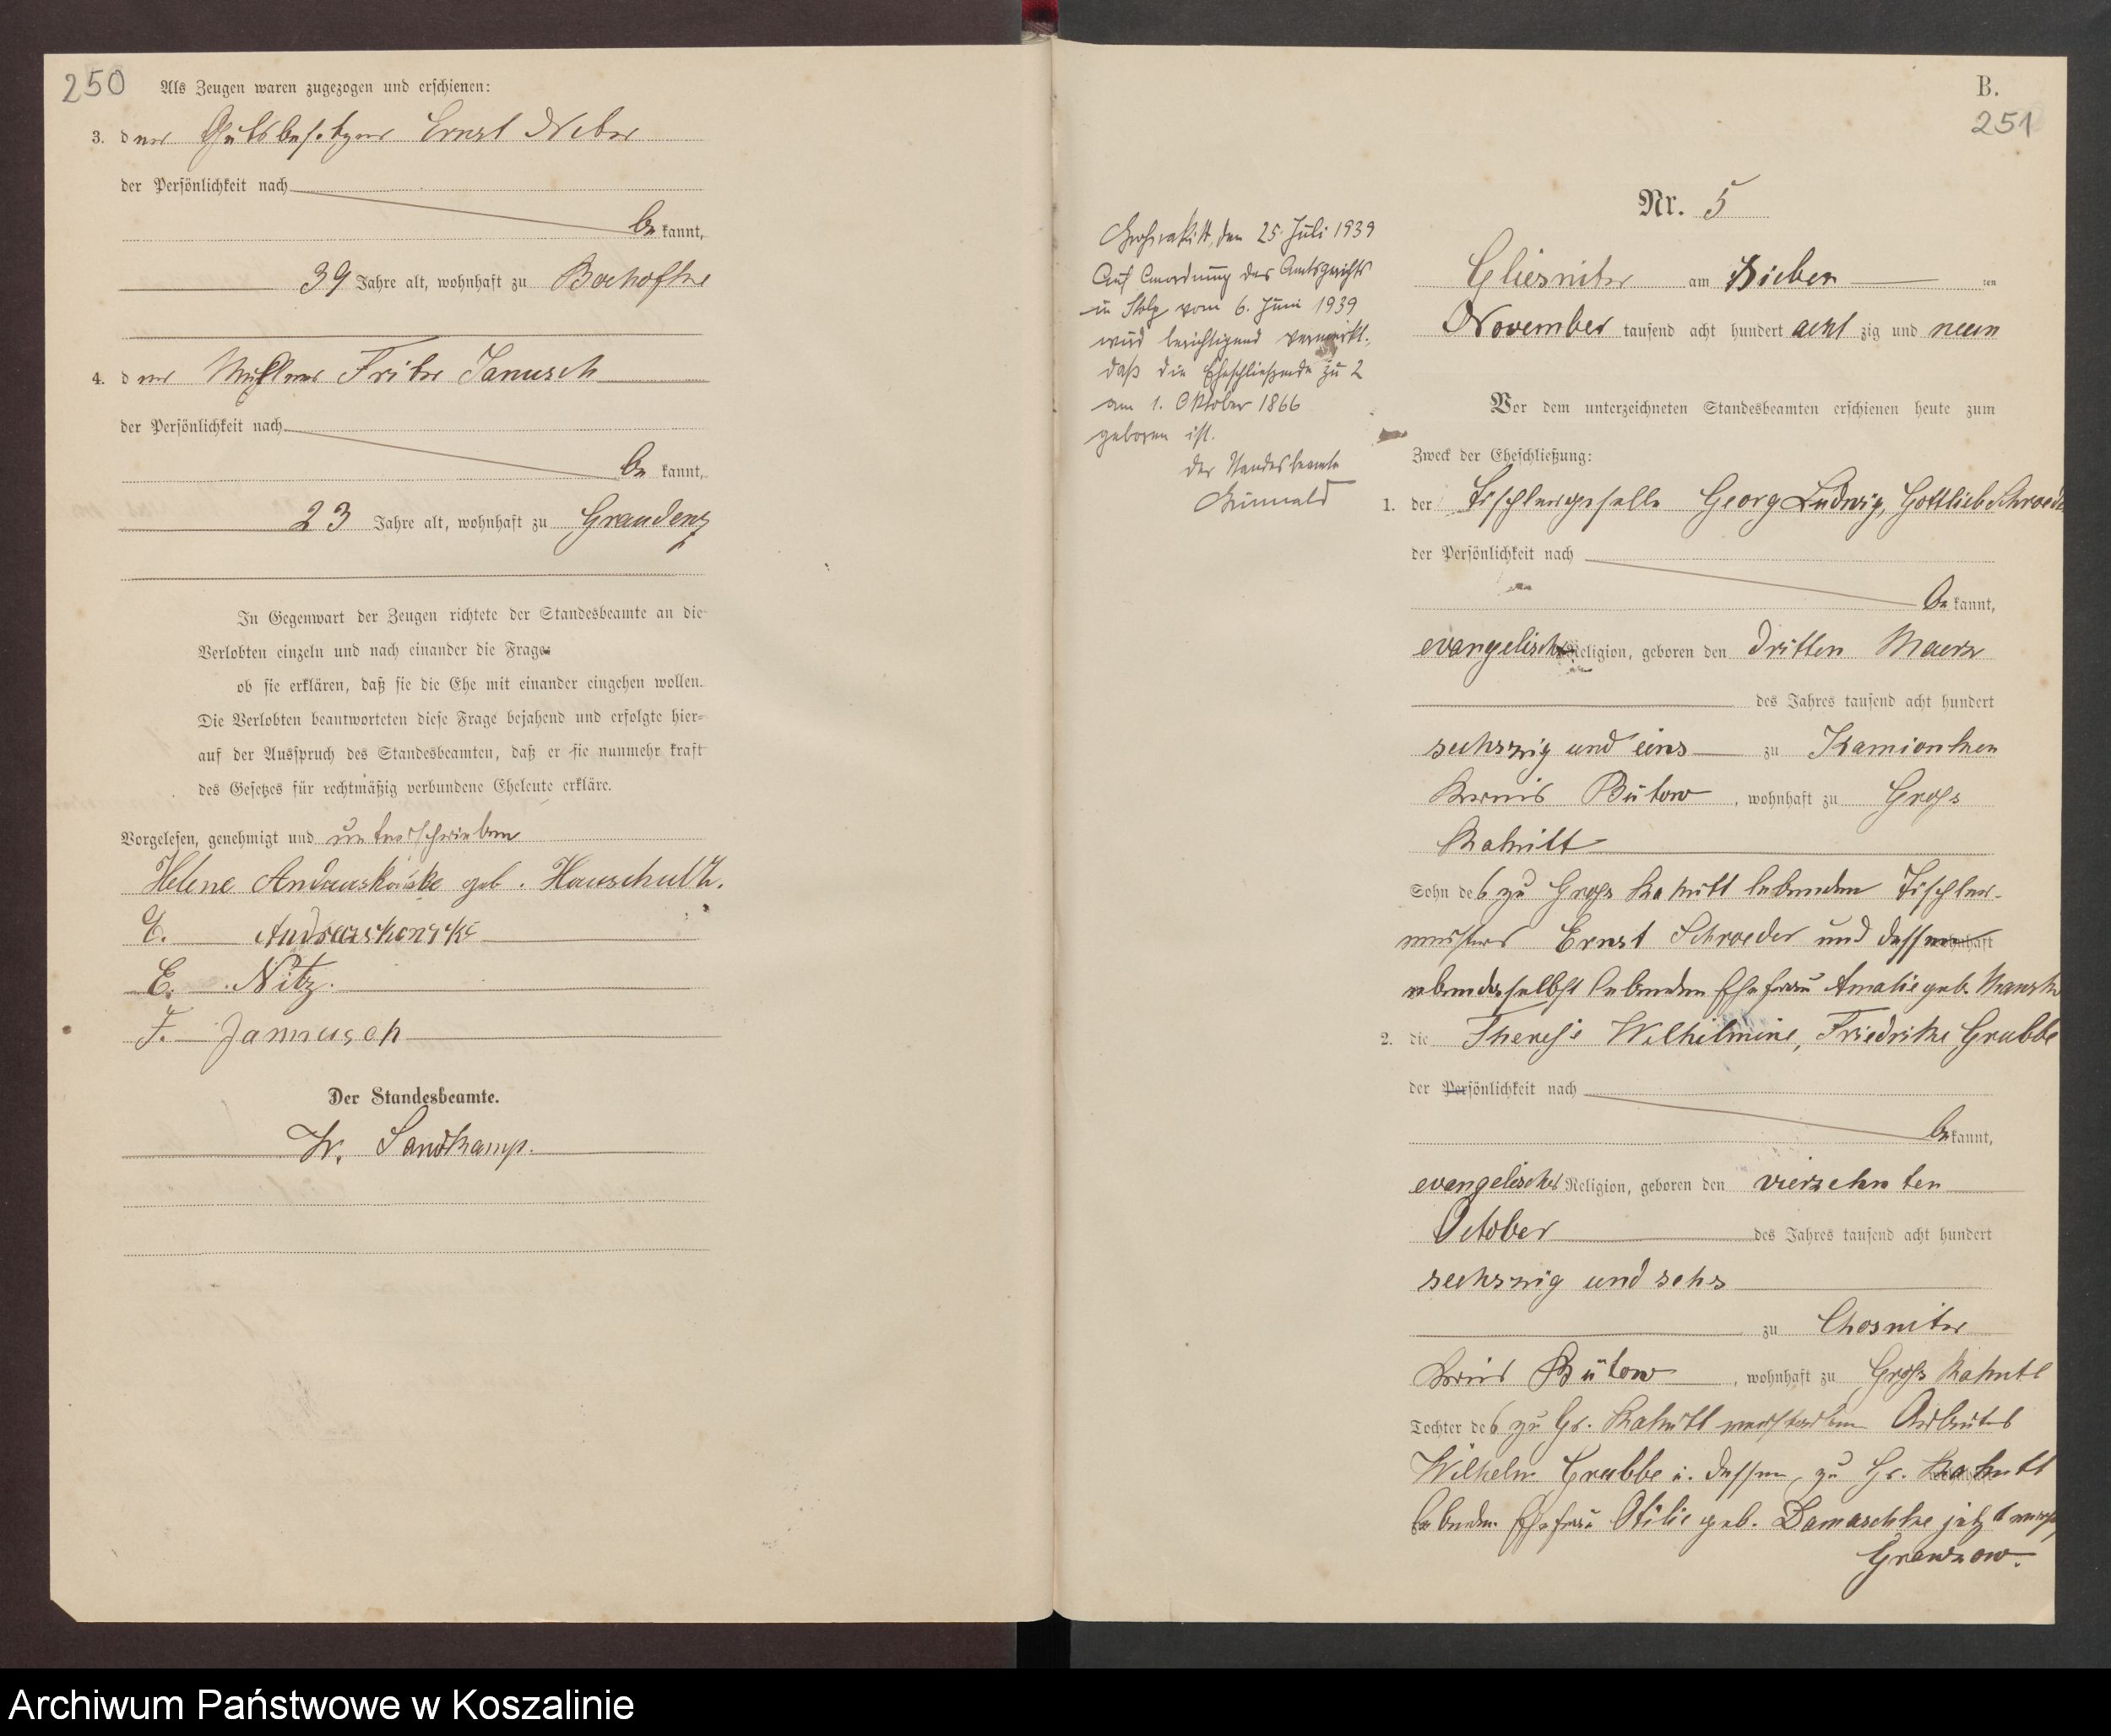 250
Als Zeugen waren zugezogen und erschienen:
3. der Gutsbesitzer Ernst
der Persönlichkeit nach
be kannt,
39 Jahre alt, wohnhaft zu
4. der Fritz Janusch
der Persönlichkeit nach
be kannt,
23 Jahre alt, wohnhaft zu Graudenz
In Gegenwart der Zeugen richtete der Standesbeamte an die
Verlobten einzeln und nach einander die Frage:
ob sie erklären, daß sie die Ehe mit einander eingehen wollen.
Die Verlobten beantworteten diese Frage bejahend und erfolgte hier=
auf der Ausspruch des Standesbeamten, daß er sie nunmehr kraft
des Gesetzes für rechtmäßig verbundene Eheleute erkläre.
Vorgelesen, genehmigt und unterschrieben
Helene geb. Hauschultz.
E.
E. Nitz.
F. Jannusch
Der Standesbeamte.
W. Sandkamp.
B.
251
Nr. 5
Großrakitt, den 25. Juli 1939
Auf Anordnung des Amtsgerichts
in Stolp vom 6. Juni 1939
wird berichtigend vermerkt,
daß die Eheschließende zu 2
am 1. Oktober 1866
geboren ist.
Der Standesbeamte
Gliesnitz am sieben ten
November tausend acht hundert acht zig und neun
Vor dem unterzeichneten Standesbeamten erschienen heute zum
Zweck der Eheschließung:
1. der Tischlergeselle Georg Ludwig, Gottlieb Schroeder
der Persönlichkeit nach
be kannt,
evangelischer Religion, geboren den dritten Maerz
des Jahres tausend acht hundert
sechszig und eins zu Kamionken
Kreis Bütow, wohnhaft zu Gross
Rakitt
Sohn des zu Gross Rakitt lebenden Tischler-
meisters Ernst Schroeder und dessen wohnhaft
ebendaselbst lebenden Ehefrau Amalie geb.
2. die Therese Wilhelmine, Friedrike Grubbe
der Persönlichkeit nach
be kannt,
evangelischer Religion, geboren den vierzehnten
October des Jahres tausend acht hundert
sechszig und sehs
zu Chosnitz
Kreis Bütow, wohnhaft zu Gross Rakitt
Tochter des zu Gr. Rakitt verstorbenen Arbeiters
Wilhelm Grubbe u. dessen, zu Gr. Rakitt
lebenden Ehefrau Otilie geb. Damaschke jetzt